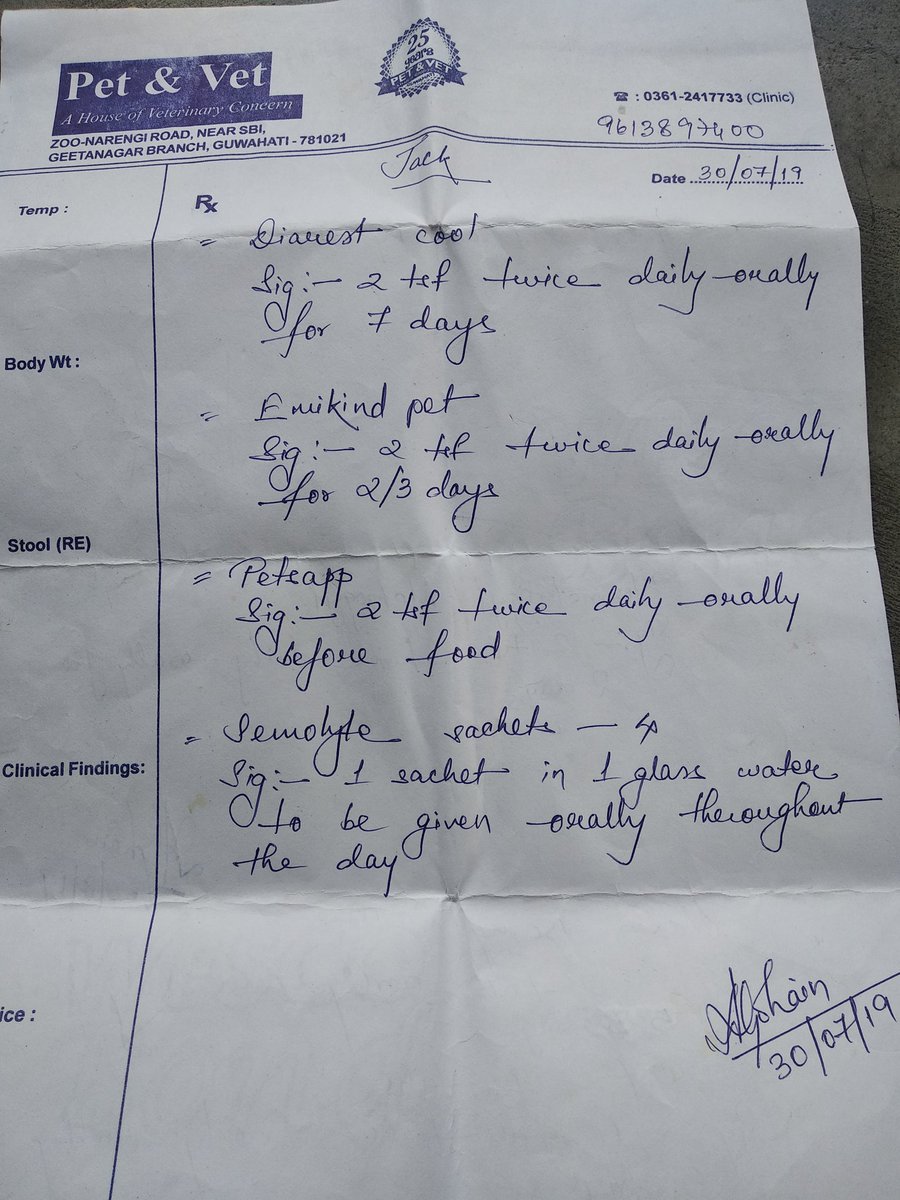 25
years
PET & VET
Pet & Vet
A House of Veterinary Concern
ZOO-NARENGI ROAD, NEAR SBI,
GEETANAGAR BRANCH, GUWAHATI - 781021
☎ : 0361-2417733 (Clinic)
9613897400
Jack
Date 30/07/19
Temp :
Rx
= Diarest cool
Sig:- 2 tsf twice daily orally
for 7 days
Body Wt :
= Emikind pet
Sig:- 2 tsf twice daily orally
for 2/3 days
Stool (RE)
= Petsapp
Sig:- 2 tsf twice daily orally
before food
= Semolyte sachets - 4
Clinical Findings:
Sig:- 1 sachet in 1 glass water
to be given orally theroughout
the day
ice :
30/07/19